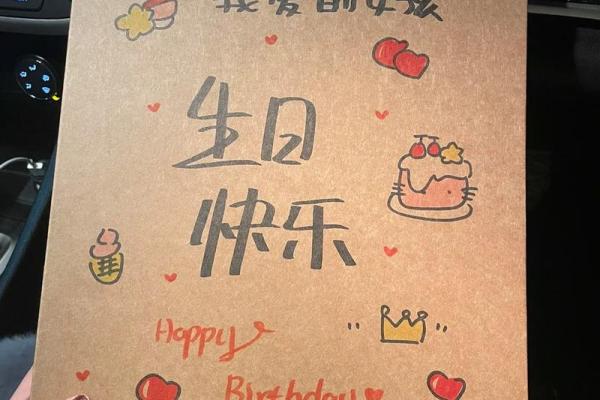 我爱的女孩
生日
快乐
Happy
Birthday